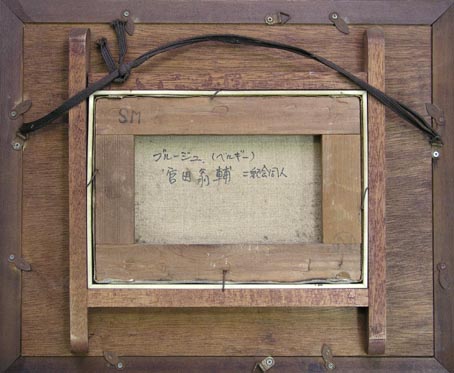 SM
ブルージュ、(ベルギー)
宮田翁輔 二紀会同人